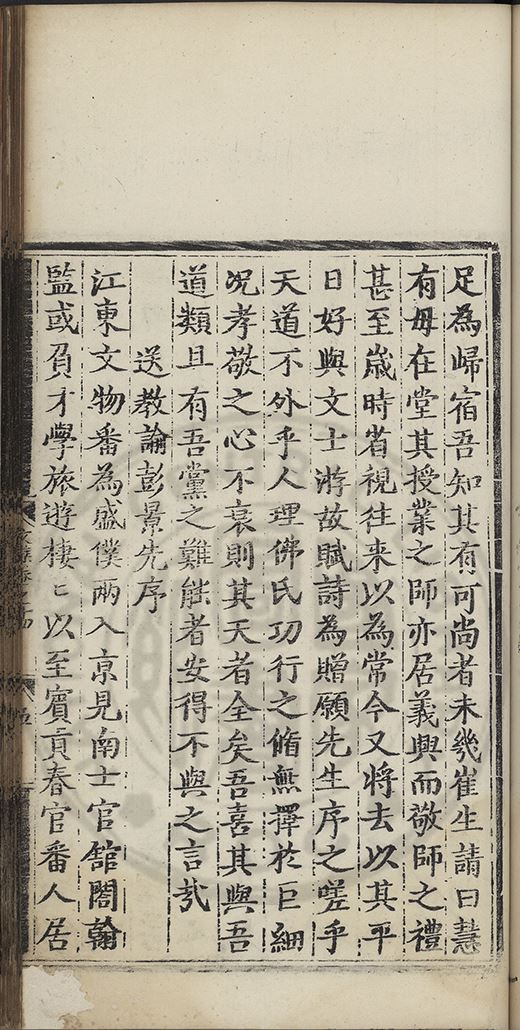 足為歸宿吾知其有可尚者未幾崔生請曰慧
有母在堂其授業之師亦居義興而敬師之禮
甚至歲時省視往來以為常今又將去以其平
日好與文士游故賦詩為贈願先生序之嗟乎
天道不外乎人理佛氏功行之脩無擇於巨細
况孝敬之心不衰則其天者全矣吾喜其與吾
道類且有吾黨之難能者安得不與之言哉
送教諭彭景先序
江東文物番為盛僕兩入京見南士官舘閣翰
監或負才學旅遊棲〻以至賓貢春官番人居